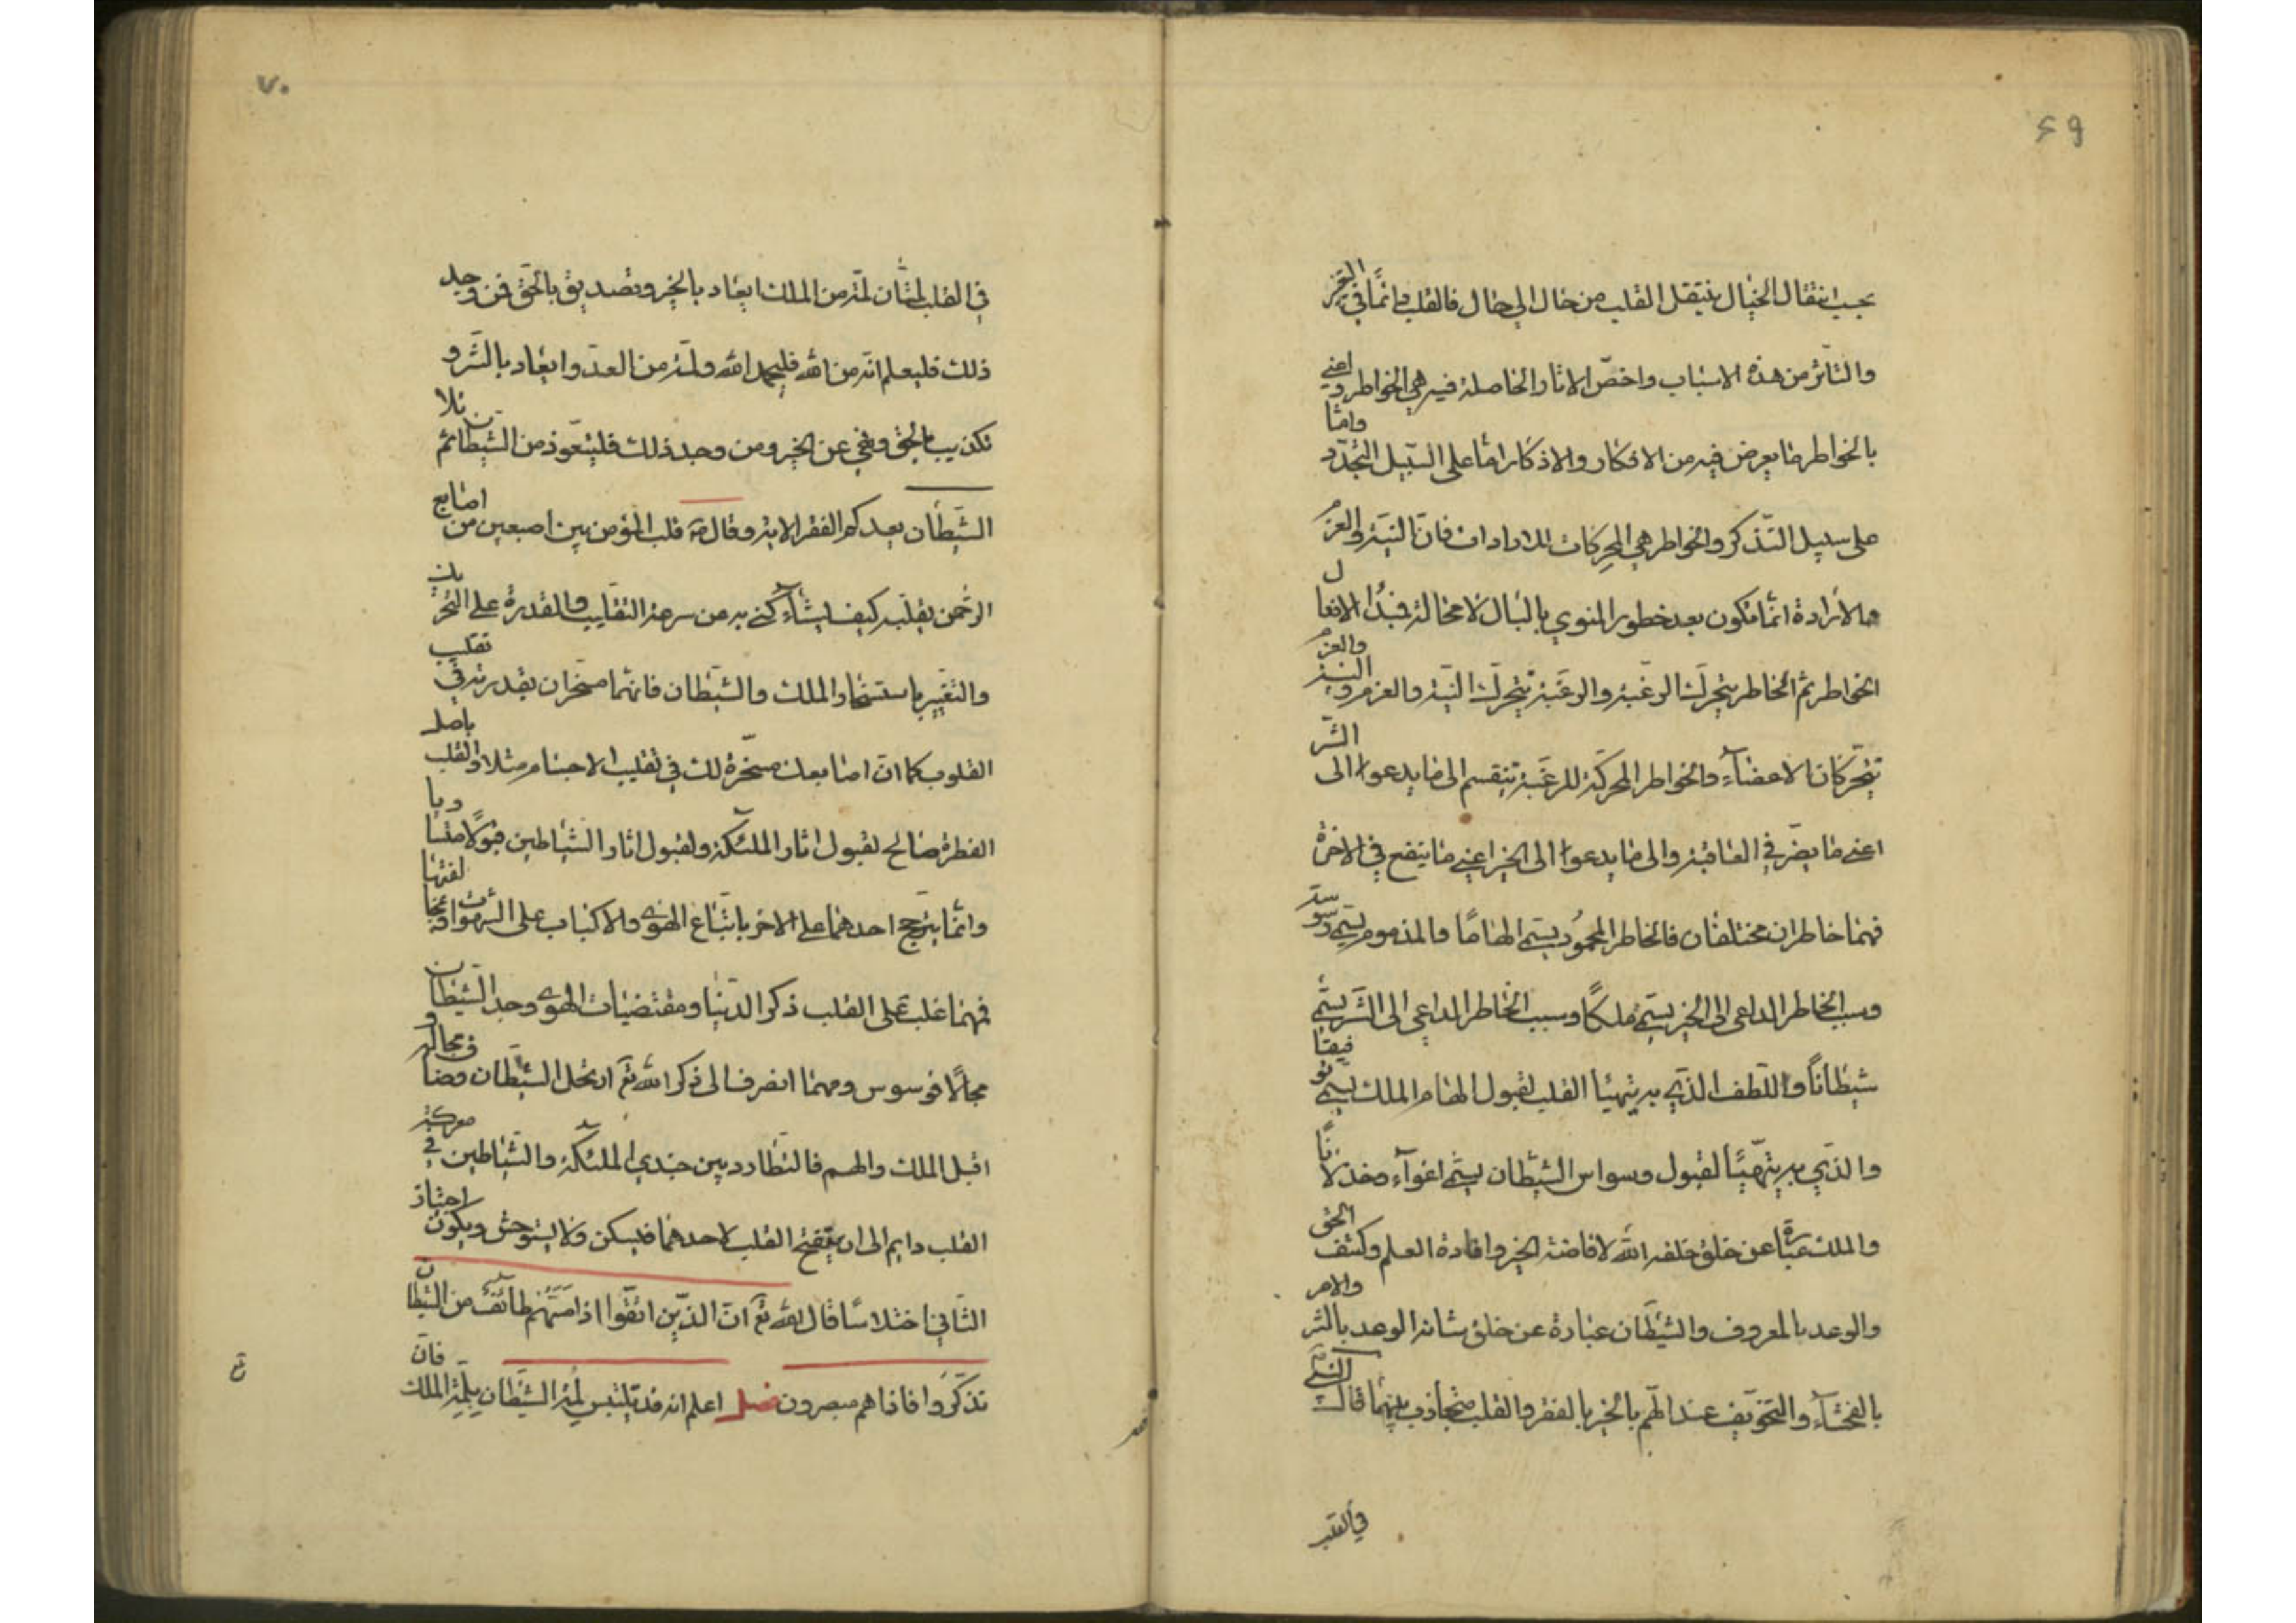 ٦٩
بحسب انتقال الخيال ينتقل القلب من حال الى حال فالقلب دائما في التغير
والتاثر من هذه الاسباب واخص الاثار الحاصلة فيه هي الخواطر واعني
بالخواطر ما يعرض فيه من الافكار والاذكار اما على السبيل التجدد واما
على سبيل التذكر والخواطر هي المحركات للارادات فان النية والعزم
والارادة انما تكون بعد خطور المنوي بالبال لا محالة فمبدأ الافعال
الخواطر ثم الخاطر يتحرك الرغبة والرغبة تتحرك النية والعزم والنية والعزم
تتحركان الاعضآء والخواطر المحركة للرغبة تنقسم الى ما يدعوا الى الشر
اعني ما يضر في العاقبة والى ما يدعوا الى الخير اعني ما ينفع في الاخرة
فهما خاطران مختلفان فالخاطر المحمود يسمى الهاما والمذموم يسمى وسوسة
وسبب الخاطر الداعي الى الخير يسمى ملكا وسبب الخاطر الداعي الى الشر يسمى
شيطانا واللطف الذي به يتهيأ القلب لقبول الهام الملك يسمى توفيقا
والذي به يتهيأ لقبول وسواس الشيطان يسمى اغوآء وخذلانا
والملك عبارة عن خلق خلقه الله لافاضة الخير وافادة العلم وكشف الحق
والوعد بالمعروف والشيطان عبارة عن خلق شانه الوعد بالشر والامر
بالفحشآء والتخويف عند الهم بالخير بالفقر والقلب متجاذب بينهما قال
في القلب
٧٠
في القلب لمتان لمة من الملك ايعاد بالخير وتصديق بالحق فمن وجد
ذلك فليعلم انه من الله فليحمد الله ولمة من العدو ايعاد بالشر و
تكذيب بالحق ونهي عن الخير ومن وجد ذلك فليتعوذ من الشيطان ثم تلا
الشيطان يعدكم الفقر الاية وقال قلب المؤمن بين اصبعين من اصابع
الرحمن يقلبه كيف يشآء كنى به من سرعة التقليب والقدرة على التحريك
والتغيير باستسخار الملك والشيطان فانهما مسخران بقدرته في تقليب
القلوب كما ان اصابعك مسخرة لك في تقليب الاجسام مثلا والقلب باصل
الفطرة صالح لقبول اثار الملئكة ولقبول اثار الشياطين قبولا متساويا
وانما يترجح احدهما على الاخر باتباع الهوى والاكباب على الشهوات او مخالفتها
فمهما غلب على القلب ذكر الدنيا ومقتضيات الهوى وجد الشيطان
مجالا فوسوس ومهما انصرف الى ذكر الله تع ارتحل الشيطان وضاق مجاله و
اقبل الملك والهم فالتطارد بين جندي الملئكة والشياطين في معركة
القلب دايم الى ان ينفتح القلب لاحدهما فيسكن ولا يستوحش ويكون اجتياز
الثاني اختلاسا قال الله تع ان الذين اتقوا اذا مستهم طائف من الشيطان
تذكروا فاذا هم مبصرون فصل اعلم انه قد يلتبس لمة الشيطان بلمة الملك فان